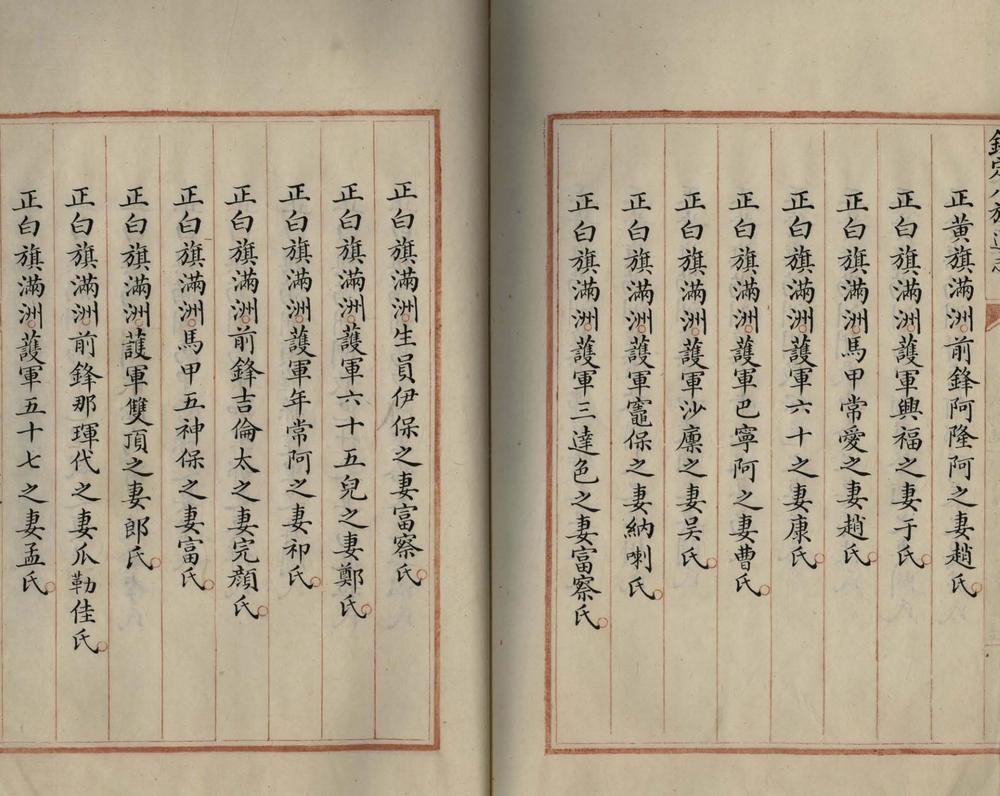 欽定八旗通志
正黃旗滿洲前鋒阿隆阿之妻趙氏
正白旗滿洲護軍興福之妻于氏
正白旗滿洲馬甲常愛之妻趙氏
正白旗滿洲護軍六十之妻康氏
正白旗滿洲護軍巴寧阿之妻曹氏
正白旗滿洲護軍沙廩之妻吴氏
正白旗滿洲護軍竈保之妻納喇氏
正白旗滿洲護軍三達色之妻富察氏
正白旗滿洲生員伊保之妻富察氏
正白旗滿洲護軍六十五兒之妻鄭氏
正白旗滿洲護軍年常阿之妻祁氏
正白旗滿洲前鋒吉倫太之妻完顏氏
正白旗滿洲馬甲五神保之妻富氏
正白旗滿洲護軍雙頂之妻郎氏
正白旗滿洲前鋒那琿代之妻瓜勒佳氏
正白旗滿洲護軍五十七之妻孟氏